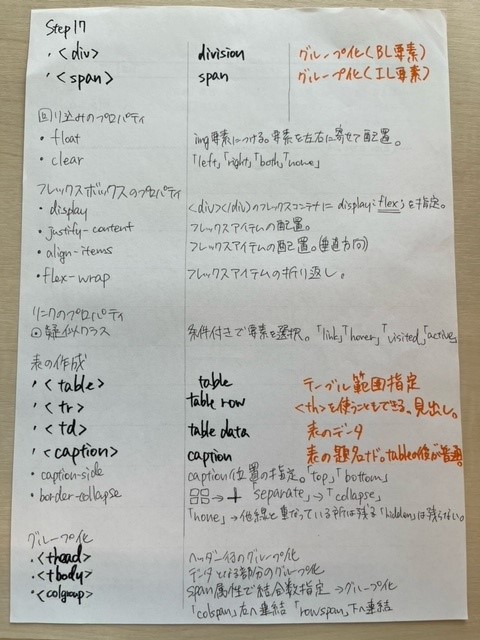 Step 17
・<div> division グループ化(BL要素)
・<span> span グループ化(IL要素)
回り込みのプロパティ
・float img要素につける。要素を左右に寄せて配置。
・clear 「left」「right」「both」「none」
フレックスボックスのプロパティ
・display <div></div>のフレックスコンテナに display:flex;を指定。
・justify-content フレックスアイテムの配置。
・align-items フレックスアイテムの配置。(垂直方向)
・flex-wrap フレックスアイテムの折り返し。
リンクのプロパティ
⊙疑似クラス 条件付きで要素を選択。「link」「hover」「visited」「active」
表の作成
・<table> table テーブル範囲指定
・<tr> table row <th>を使うこともできる。見出し。
・<td> table data 表のデータ
・<caption> caption 表の題名など。tableの後が普通。
・caption-side caption位置の指定。「top」「bottom」
・border-collapse 「separate」→「collapse」
「none」→他線と重なっている所は残る「hidden」は残らない。
グループ化
・<thead> ヘッダー行のグループ化
・<tbody> データとなる部分のグループ化
・<colgroup> span属性で結合数指定→グループ化
「colspan」右へ連結「rowspan」下へ連結